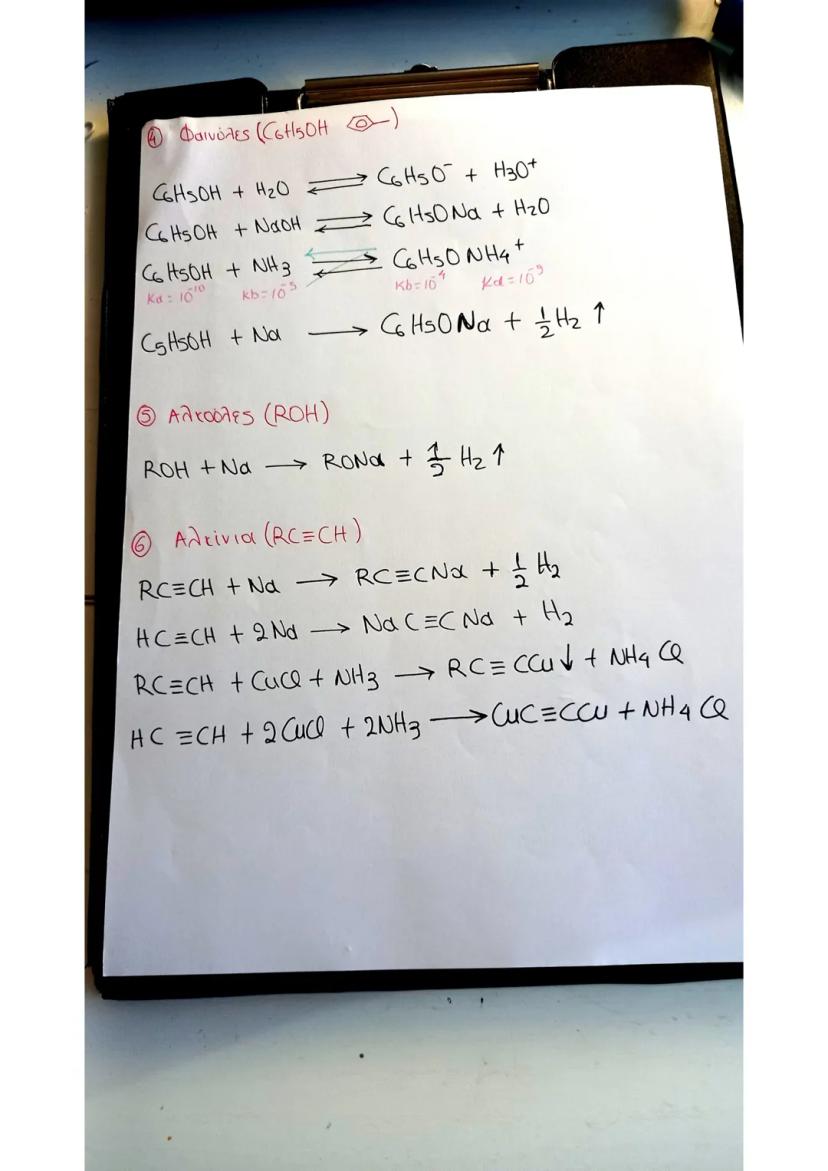 ④ Φαινόλες (C6H5OH )
C6H5OH + H2O ⇌ C6H5O⁻ + H3O⁺
C6H5OH + NaOH ⇌ C6H5ONa + H2O
C6H5OH + NH3 ⇌ C6H5O NH4⁺
Ka = 10⁻¹⁰ Kb = 10⁻⁵ Kb = 10⁻⁴ Ka = 10⁻⁹
C5H5OH + Na ⟶ C6H5ONa + 1/2 H2 ↑
⑤ Αλκοόλες (ROH)
ROH + Na ⟶ RONa + 1/2 H2 ↑
⑥ Αλκίνια (RC≡CH)
RC≡CH + Na ⟶ RC≡CNa + 1/2 H2
HC≡CH + 2Na ⟶ NaC≡CNa + H2
RC≡CH + CuCl + NH3 ⟶ RC≡CCu↓ + NH4Cl
HC≡CH + 2CuCl + 2NH3 ⟶ CuC≡CCu + NH4Cl